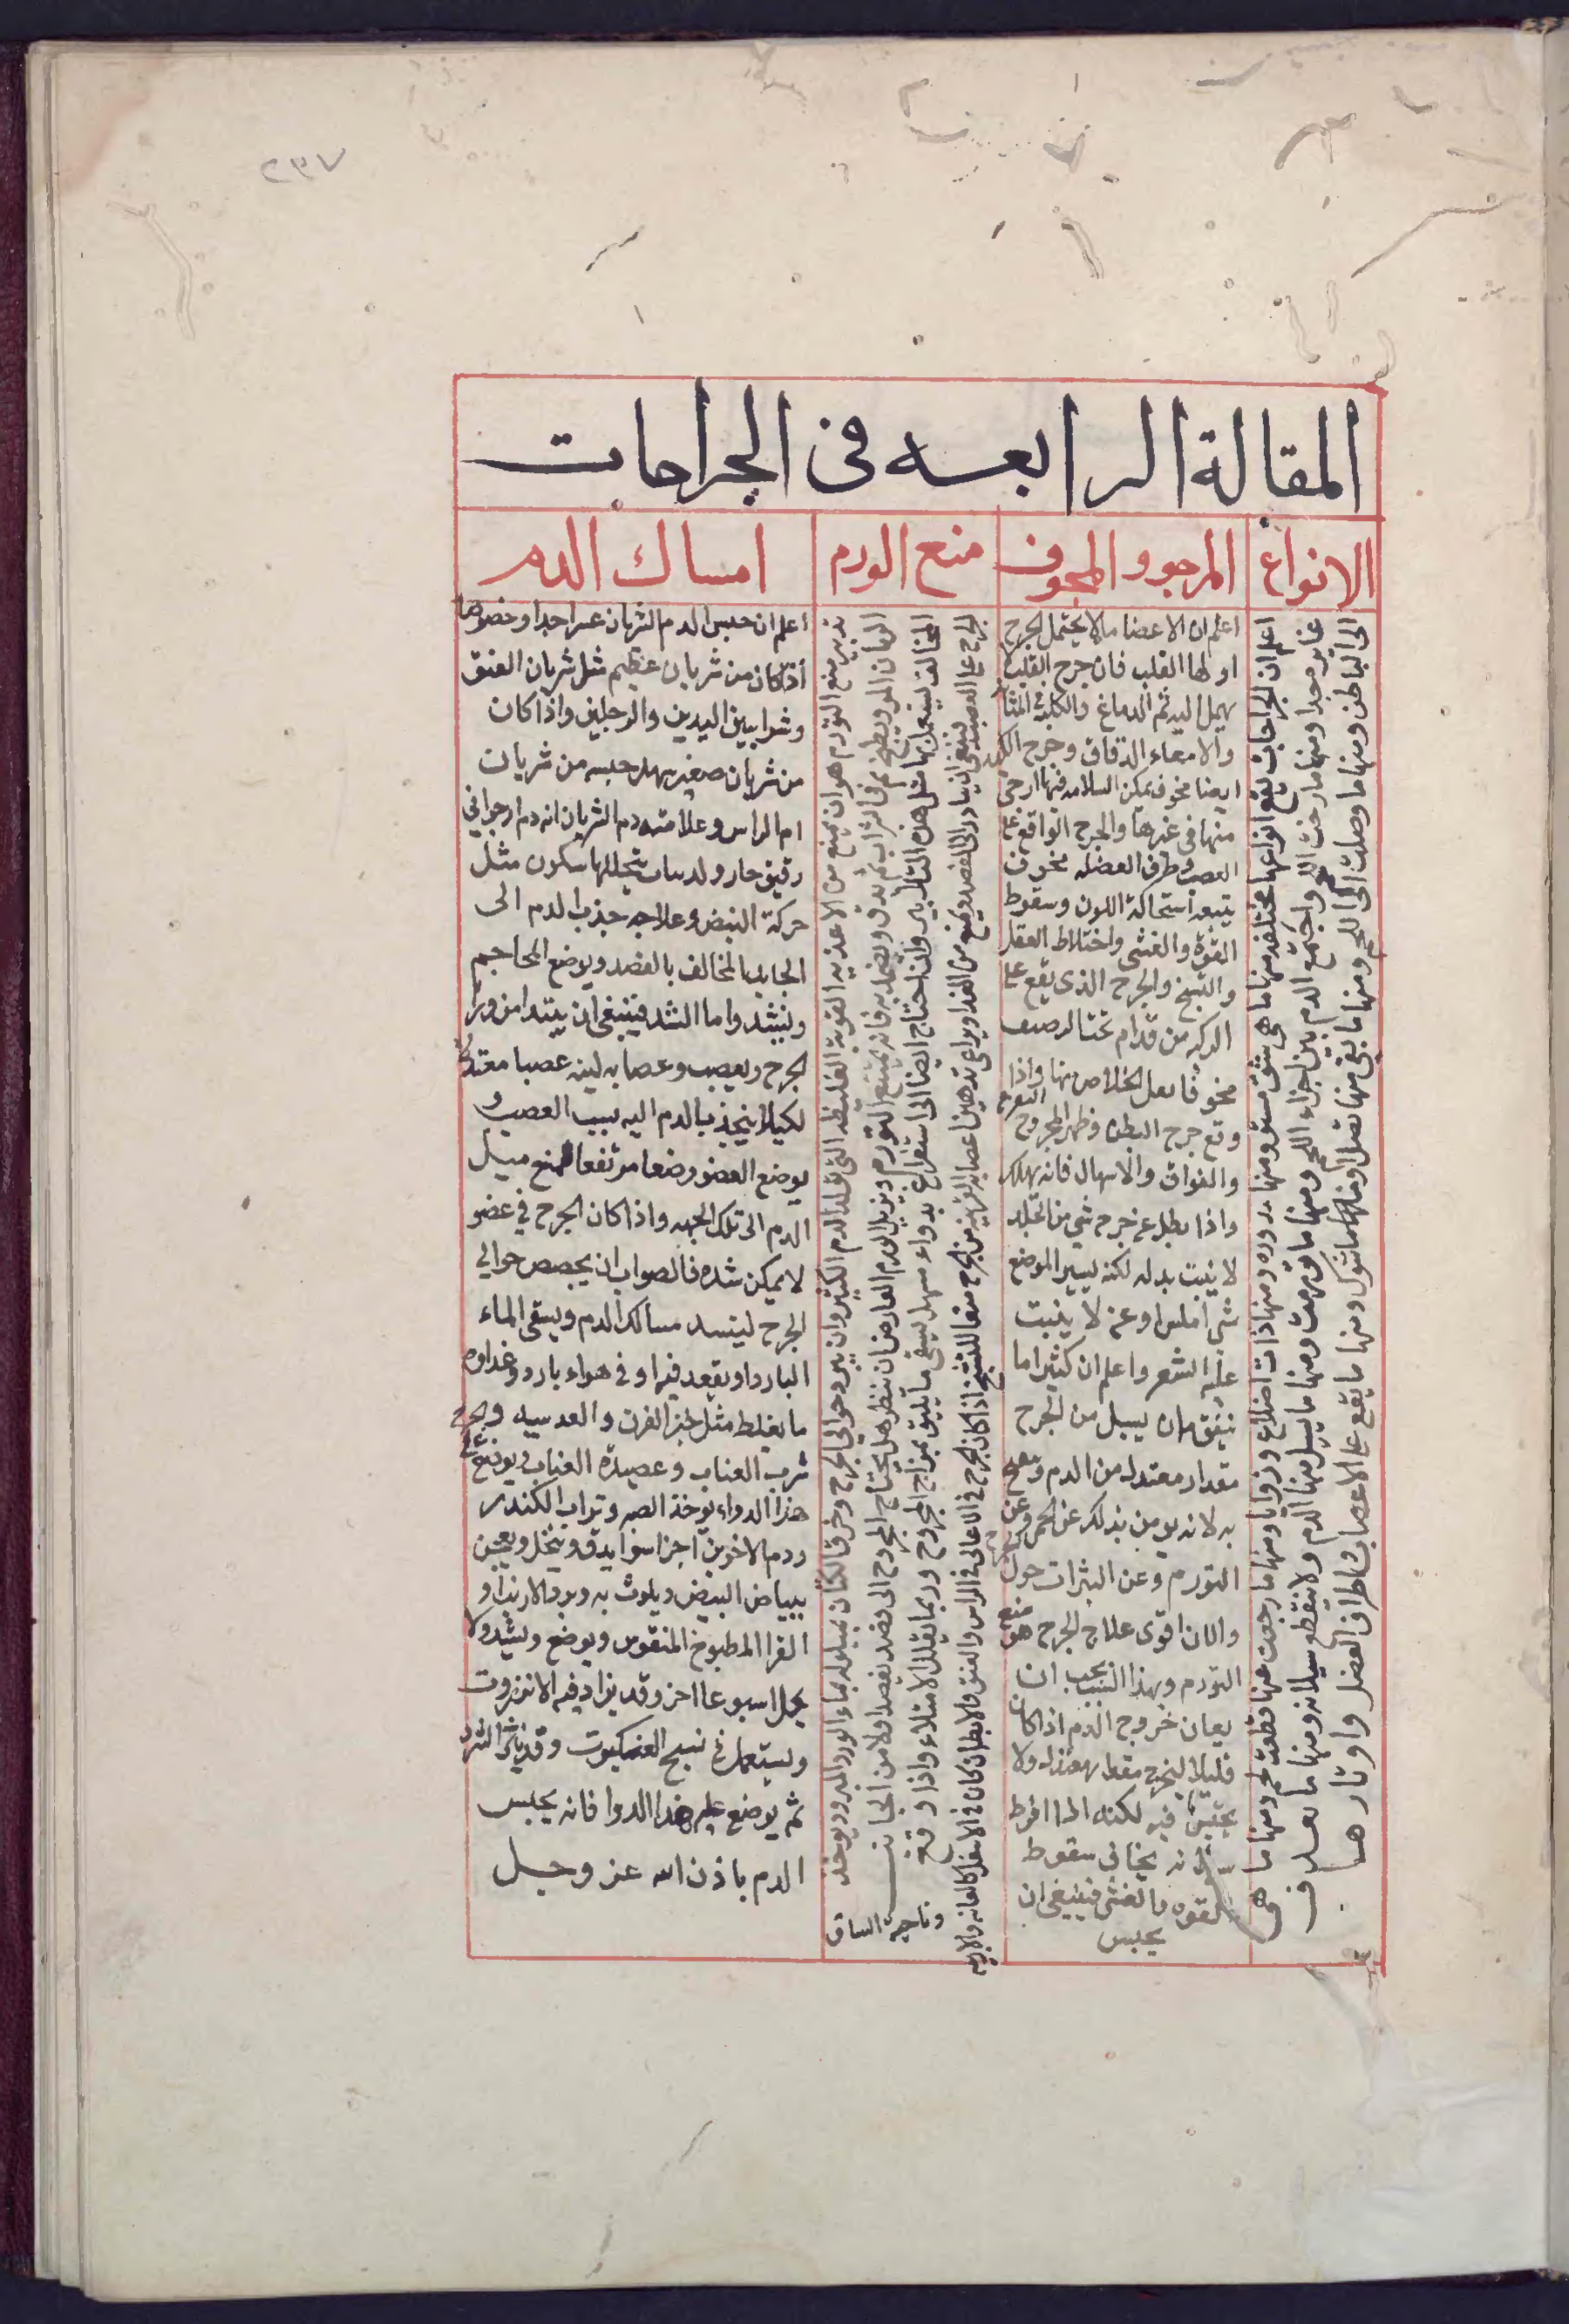 ٢٣٧
المقالة الرابعه فى الجراحات
الانواع
المرجو والمخوف
منع الورم
امساك الدم
اعلم ان الجراحات تقع انواعها مختلفه منها ما هى شق مستو ومنها مدوره ومنها ذات اضلاع وزوايا ومنها ما رجعت عنها قطعة لحم ومنها ما هى
غاير جدا ومنها ما رضت اللحم واجتمع الدم بين اجزاء اللحم ومنها ما تورمت ومنها ما يسيل منها الدم ولا ينقطع سيلانه ومنها ما
الى الباطن ومنها ما وصلت الى اللحم ومنها ما بقى منها نصل او شوك ومنها ما يقع على الاعصاب واطراف العضل واوتارها
اعلم ان الاعضا ما لا يحتمل الجرح
اولها القلب فان جرح القلب
يميل اليه ثم الدماغ والكلية والمثا
والامعاء الدقاق وجرح الكبد
ايضا مخوف يمكن السلامه فيها ارجى
منها فى غيرها والجرح الواقع على
العصب وطرف العضله مخوف
يتبعه استحالة اللون وسقوط
القوة والغشى واختلاط العقل
والتشنج والجرح الذى يقع على
الركبه من قدام تحت الرضف
مخوف قل الخلاص منها واذا
وقع جرح البطن وظهر المجروح
والفواق والاسهال فانه يهلك
واذا بطل عن جرح شى من الجلد
لا ينبت بدله لكنه يسير الموضع
شى املس او عن لا ينبت
عليه الشعر واعلم ان كثيرا ما
يتفق ان يسيل من الجرح
مقدار معتدل من الدم
به لانه يومن بذلك عن
التورم وعن البثرات حول
والان اقوى علاج الجرح هو منع
التورم وبهذا السبب يجب ان
يعان خروج الدم اذا كان
قليلا ليخرج مقدار معتدل ولا
يحتبس فيه لكنه اذا افرط
سيلانه يخاف سقوط
القوه والغشى فينبغى ان
يحبس
تدبير منع التورم هو ان يمنع من الاغذيه القويه الغليظه التى تولد الدم الكثير وان يبرد حوالى الجرح وخرقة الكتان مبلوله بماء الورد المبرد ويوخذ
الرمان المز ويطبخ فى الشراب ثم يدق ويضمد به فانه يمنع التورم ويزيل الورم العارض ان ينظر هل يحتاج المجروح الى فصد يفصد اولا من الجانب
المخالف ليستعمل بها مثل هذه التدابير وان احتاج ايضا الى استفراغ بدواء مسهل يسقى ما يليق بمزاج المجروح وربما يقلل الامتلاء واذا وقع
الجرح على العصب ينبغى ان يبادر الى الفصد ويمنع من الغذا ويراعى تدهين اعصابه القريبه من الجرح منعا للتشنج اذا كان الجرح فى الاعالى فى الراس والعنق والابطان كان فى الاسفل كالعانه والاربيه
وناحية الساق
اعلم ان حبس الدم الشريان عسر جدا وخصوصا
اذا كان من شريان عظيم مثل شريان العنق
وشرايين اليدين والرجلين واذا كان
من شريان صغير يهل حبسه من شريان
ام الراس وعلامته دم الشريان انه دم ارجوانى
رقيق حار وله وثبات يتخللها سكون مثل
حركة النبض وعلاجه جذب الدم الى
الجانب المخالف بالفصد ويوضع المحاجم
وليشد واما الشد فينبغى ان يبتدا من ورا
الجرح ويعصب وعصابه لينه عصبا معتدلا
لكيلا ينجذب الدم اليه بسبب العصب و
يوضع العضو وضعا مرتفعا لمنع ميل
الدم الى تلك الجهه واذا كان الجرح فى عضو
لا يمكن شده فالصواب ان يجصص حوالى
الجرح لينسد مسالك الدم ويسقى الماء
البارد او يقعد فيه او فى هواء بارد وغداوه
ما يغلظ مثل خبز الفرن والعدسيه
شرب العناب وعصيدة العناب ويوضع على
هذا الدواء يوخذ الصبر وتراب الكندر
ودم الاخوين اجزا سوا يدق وينخل ويعجن
ببياض البيض ويلوث به وبر الارنب او
الفرا المطبوخ المنقوس ويوضع ويشد ولا
يحل اسبوعا اخر وقد يزاد فيه الانزروت
ويستعمل فى نسج العنكبوت
ثم يوضع عليه هذا الدوا فانه يحبس
الدم باذن الله عز وجل